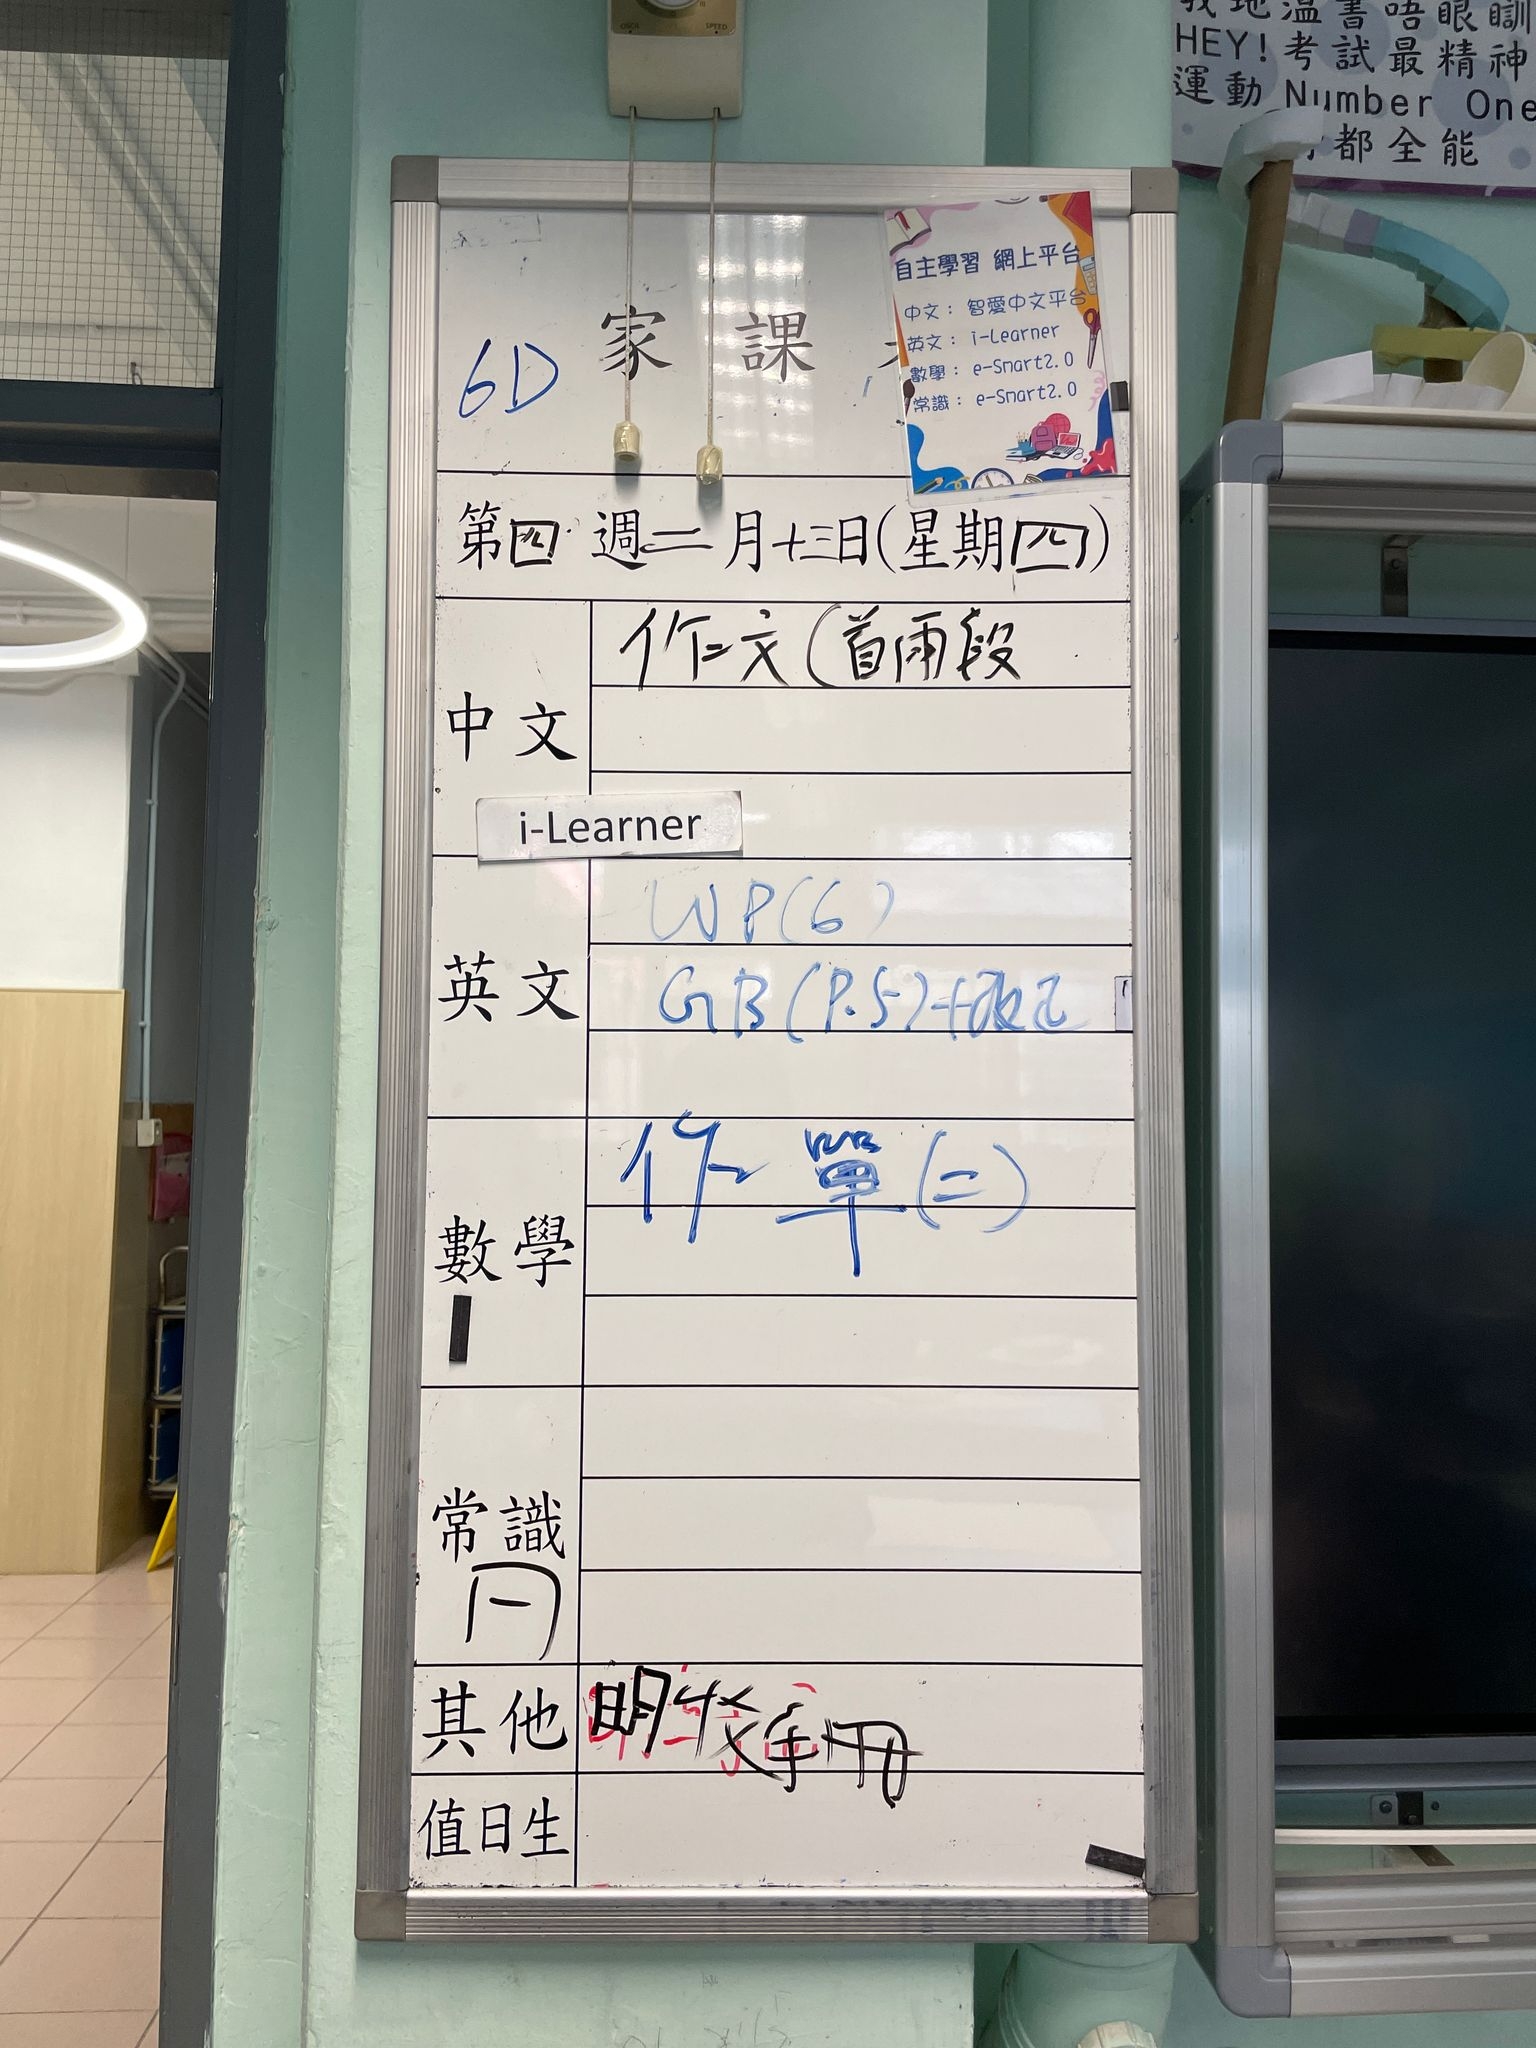 我地溫書唔眼瞓
HEY!考試最精神
運動 Number One
都全能
OSCIL SPEED
家課
6D
自主學習 網上平台
中文： 智愛中文平台
英文： i-Learner
數學： e-Smart2.0
常識： e-Smart2.0
第四週二月十三日(星期四)
中文
作文(首兩段
i-Learner
英文
WP(6)
GB(P.5)+改正
數學
作單(二)
常識
其他
明收手冊
值日生